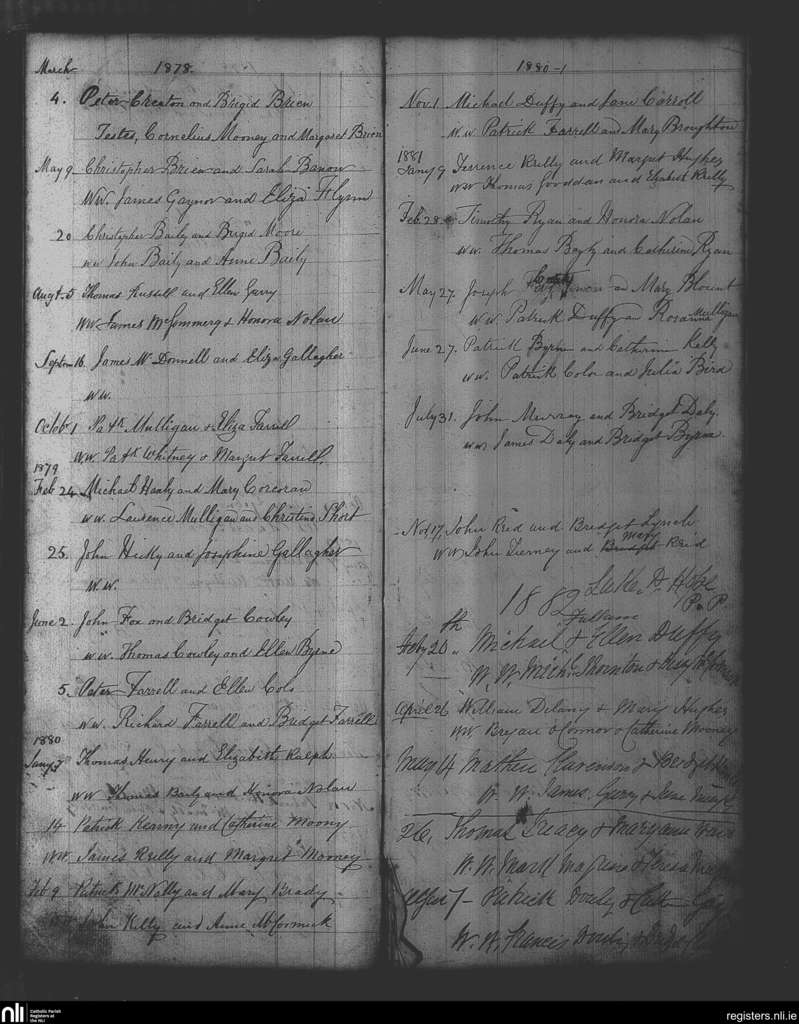 March 1878.
4. Peter Creaton and Brigid Brien
Testes, Cornelius Mooney and Margaret Brien
May 9 Christopher Brien and Sarah Banon
WW. James Gaynor and Eliza Flynn
20 Christopher Baily and Brigid Moore
ww John Baily and Anne Baily
Augt. 5 Thomas Russell and Ellen Garry
WW. James McCommerg & Honora Nolan
Septm 16. James McDonnell and Eliza Gallagher
ww.
Octob 1 Patk Mulligan & Eliza Farrell
WW Patk Whitney & Margret Farrell.
1879
Feb 24 Michael Healy and Mary Corcoran
ww. Laurence Mulligan and Christina Short
25. John Hicky and Josephine Gallagher
W.W.
June 2. John Fox and Bridget Cowley
ww. Thomas Cowley and Ellen Byrne
5. Peter Farrell and Ellen Cole
ww. Richard Farrell and Bridget Farrell
1880
Jany Thomas Henry and Elizabeth Ralph
ww Thomas Baily and Honora Nolan
14 Patrick Kearny and Catherine Moony
WW. James Reilly and Margret Mooney
Feb 9 Patrick McNally and Mary Brady
John Kelly and Anne McCormick
1880-1
Nov. 1 Michael Duffy and Jane Carroll
w.w. Patrick Farrell and Mary Broughton
1881
Jany 9 Terrence Reilly and Margret Hughes
ww Thomas and Elizabeth Reilly
Feb. 28 Timothy Ryan and Honora Nolan
ww. Thomas and Catherine Ryan
May 27. Joseph an Mary Blount
ww. Patrick Duffy an Rosanna Mulligan
June 27. Patrick Byrne and Catherine Kelly
ww. Patrick Colo and Julia Bird
July 31. John Murray and Bridget Daly.
ww. James Daly and Bridget Byrne
Nov 17, John Reid and Bridget Lynch
ww John Tierney and Bridget Mary Reid
Luke
1882 P. P.
Feby 20th Michael & Ellen Duffy
W. W. Mich. Thornton & Mary
April 26 William Delany & Mary Hughes
WW Bryan O Connor & Catherine Mooney
May 14 Mathew & Bridget
W. W. James Garry & Jane
26, Thomas Treacy & Maryanne
W. W. Mark & Teresa
7 - Patrick &
W. W. Francis &
nli
Catholic Parish
Registers at
the NLI
registers.nli.ie